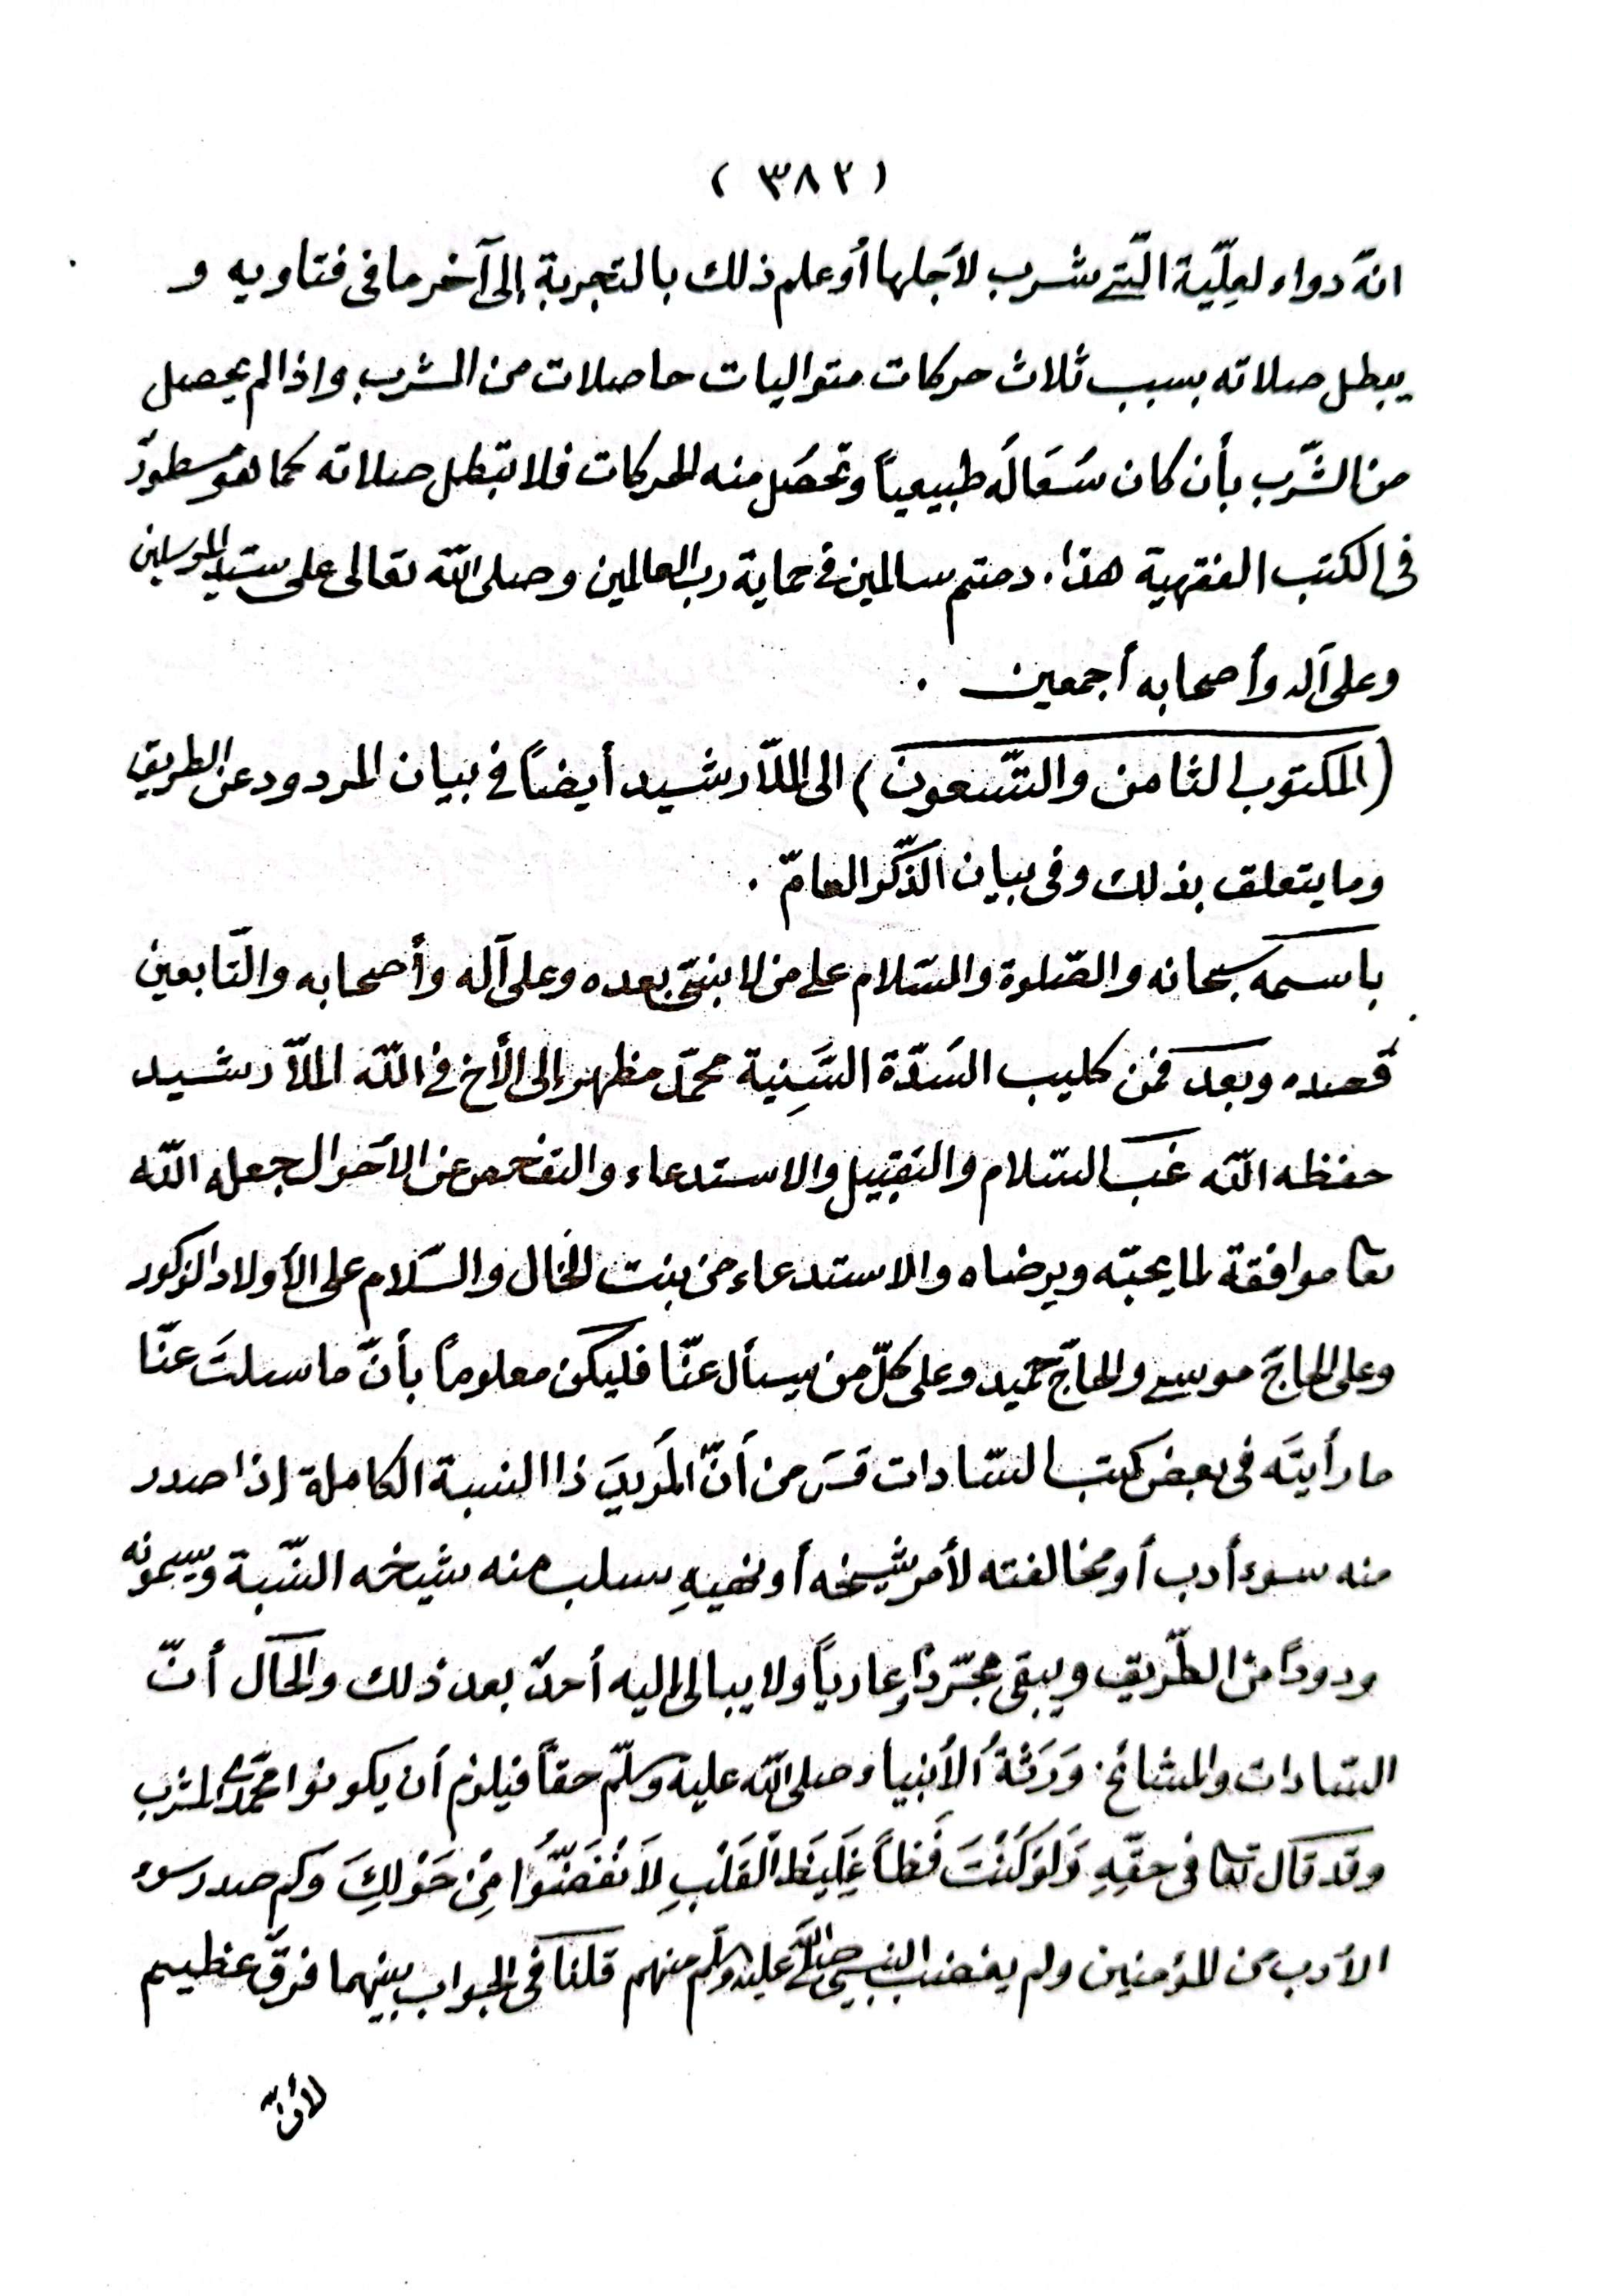 ( ٣٨٢ )
انّه دواء لعِلّية الّتي شرب لأجلها أو علم ذلك بالتجربة إلى آخر ما في فتاويه و
يبطل صلاته بسبب ثلاث حركات متواليات حاصلات من الشرب واذا لم يحصل
من الشّرب بأن كان سَعَالُه طبيعياً وتحصَل منه الحركات فلا تبطل صلاته كما هو مسطورٌ
في الكتب الفقهية هذا . دمتم سالمين في حماية رب العالمين وصلى اللّه تعالى على سيّد المرسلين
وعلى آله وأصحابه أجمعين .
(المكتوب الثامن والتّسعون) الى الملّا رشيد أيضاً في بيان المردود عن الطريق
وما يتعلق بذلك وفي بيان الذّكر العامّ .
باسمه سبحانه والصّلوة والسّلام على من لا نبيّ بعده وعلى آله وأصحابه والتّابعين
قصده وبعد فمن كليب السَدّة السَّنِية محمّد مظهر إلى الأخ في اللّه الملّا رشيد
حفظه اللّه غبّ السّلام والتقبيل والاستدعاء والتفحص عن الأحوال جعله اللّه
تعا موافقة لما يحبّه ويرضاه والاستدعاء من بنت الخال والسّلام على الأولاد الزكور
وعلى الحاجّ موسى والحاجّ حميد وعلى كلّ من يسأل عنّا فليكن معلوماً بأنّ ما سلتَ عنّا
ما رأيتَه في بعض كتب السّادات قسَ من أنّ المُريدَ ذا النسبة الكاملة إذا صدر
منه سوء أدب أو مخالفته لأمر شيخه أو نهيهِ سلب منه شيخه النّسبة ويسمونه
ردوداً من الطّريق ويبقى مجرّداً وعارياً ولا يبالى اليه أحدٌ بعد ذلك والحال أنّ
السّادات والمشائخ وَرَثةُ الأنبياء صلى اللّه عليه وسلّم حقاً فيلزم أن يكونوا محمّدي المشرب
وقد قال تعا في حقّهِ وَلَوْ كُنْتَ فَظّاً غَلِيظَ الْقَلْبِ لاَنْفَضُّوا مِنْ حَوْلِكَ وكم صدر سوء
الأدب من المؤمنين ولم يغضب النبي صلى اللّه عليه وسلم منهم قلنا في الجواب بينهما فرقٌ عظيم
لأنّ